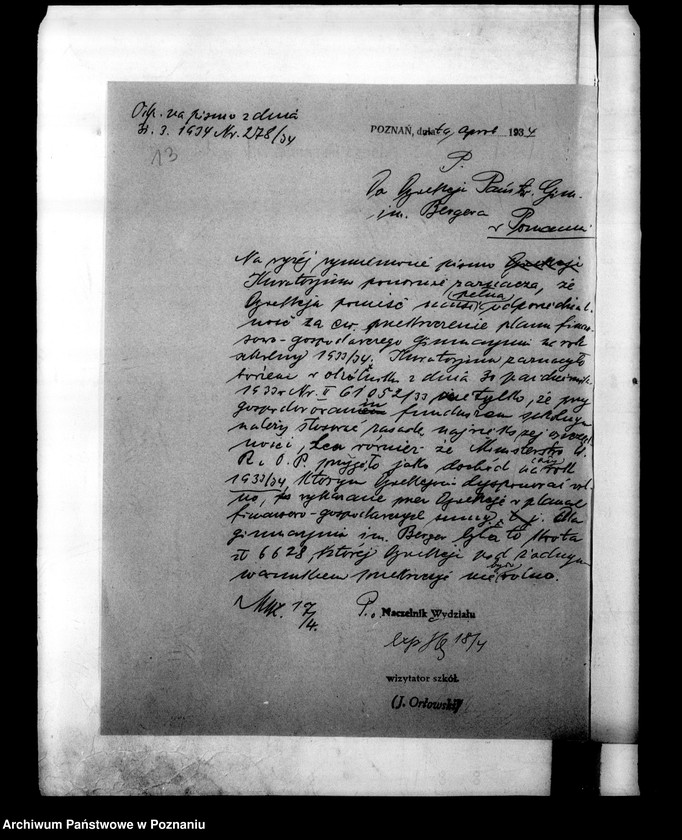 Odp. na pismo z dnia
31. 3. 1934 Nr. 278/34
13
POZNAŃ, dnia 16 april 1934
P.
Do Dyrekcji Państw. Gim.
im. Bergera
w Poznaniu
Na wyżej wymienione pismo Dyrekcji
Kuratorjum ponownie zaznacza, że
Dyrekcja ponosić musi pełną odpowiedzial-
ność za ew. przekroczenie planu finan-
sowo-gospodarczego gimnazjum na rok
szkolny 1933/34. Kuratorjum zaznaczyło
bowiem w okólniku z dnia 31 października
1933 r Nr. II 61052/33 nie tylko, że przy
gospodarowaniu funduszem szkolnym
należy stosować zasadę najwiekszej oszczęd-
ności, lecz również że Ministerstwo W.
R. i O. P. przyjęło jako dochód na rok
1933/34, którym Dyrekcjom dysponować wol-
no, wykazane przez Dyrekcje w planach
finansowo-gospodarczych sumy, t. j. Dla
gimnazjum im. Berger była to kwota
zł 6628, której Dyrekcji pod żadnym
warunkiem przekroczyć nie być wolno.
17/4.
P. Naczelnik Wydziału
exp 18/4
wizytator szkół
(J. Orłowski)
Archiwum Państwowe w Poznaniu